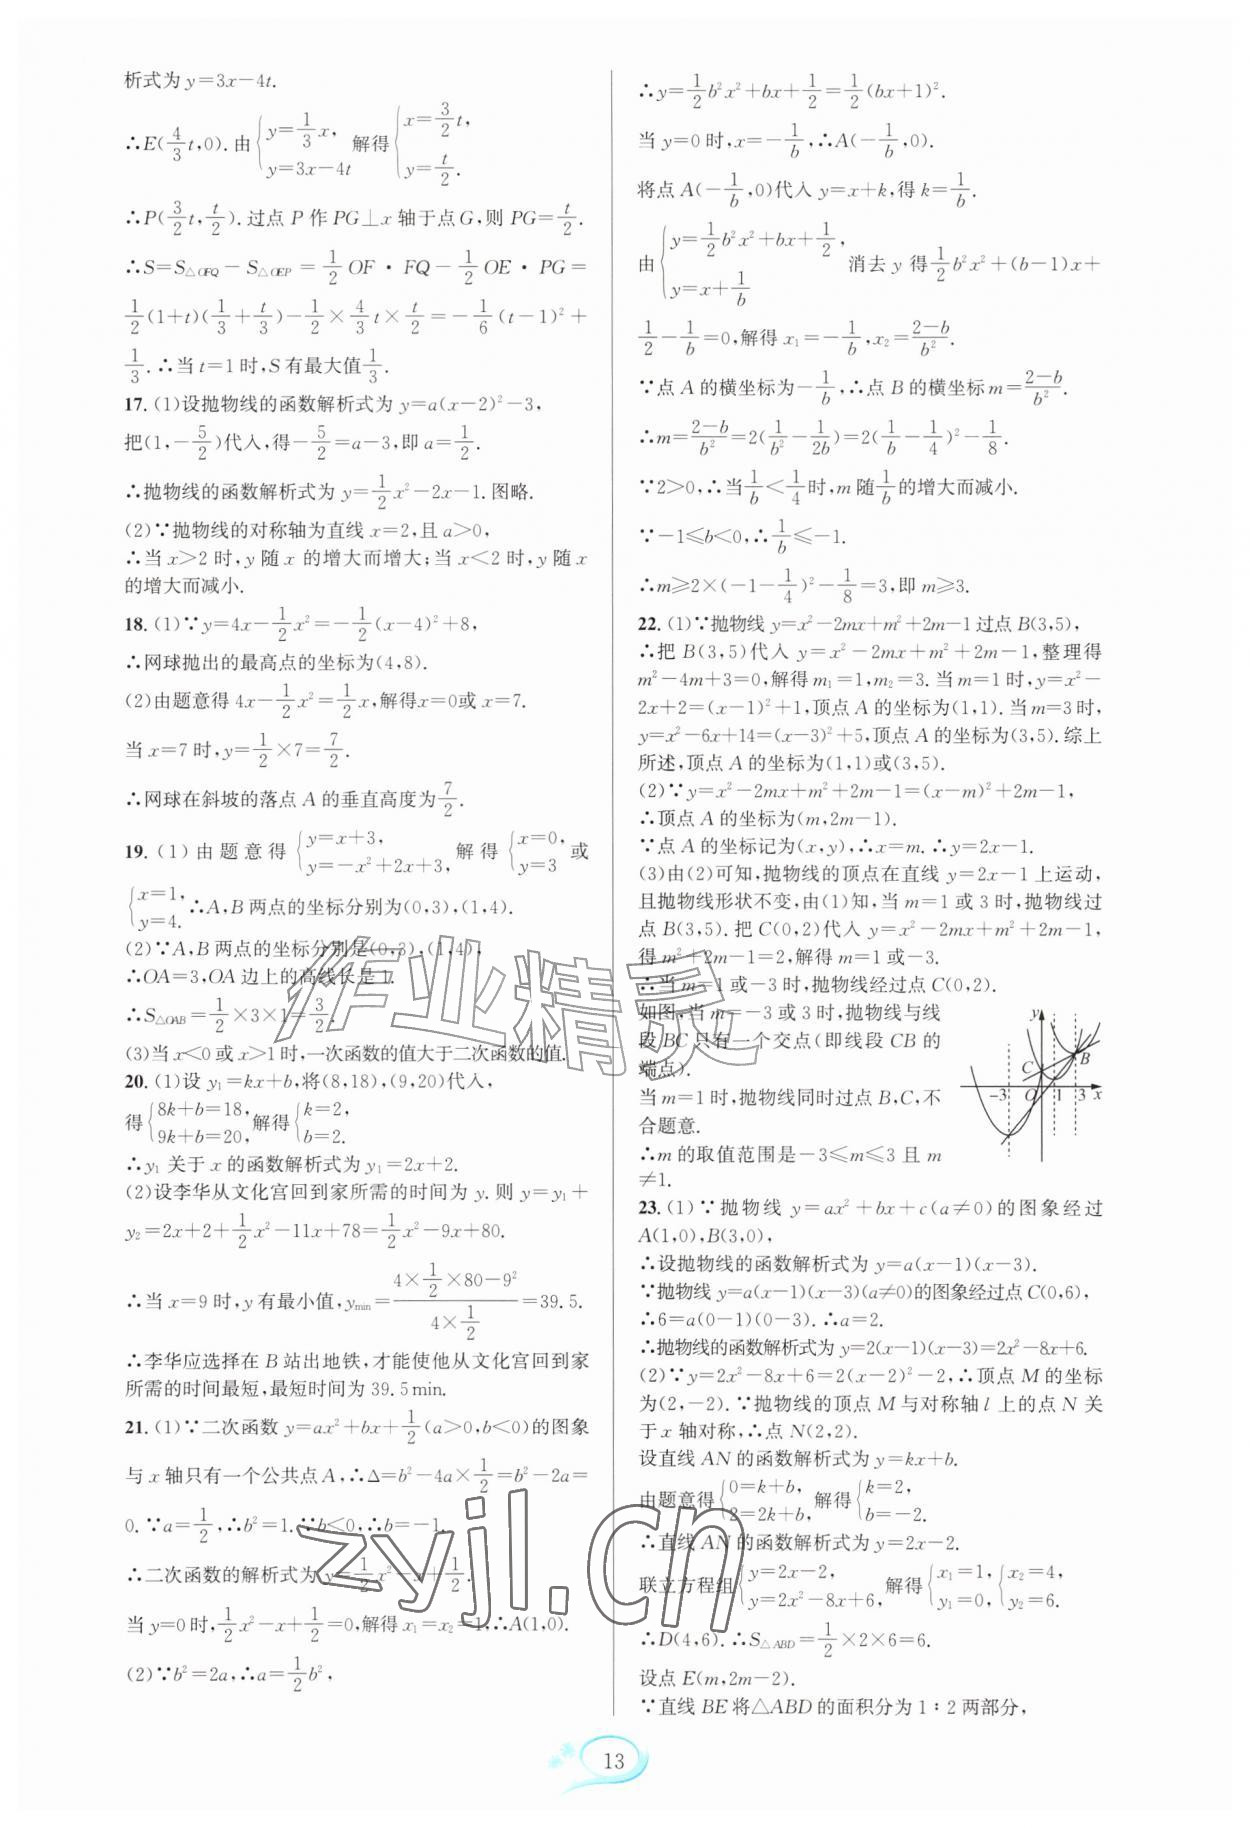 析式为 y=3x-4t.
∴E(4/3 t,0).由{y=1/3 x, y=3x-4t 解得{x=3/2 t, y=t/2.
∴P(3/2 t,t/2).过点 P 作 PG⊥x 轴于点G,则 PG=t/2.
∴S=S△OFQ-S△OEP=1/2 OF·FQ-1/2 OE·PG=
1/2(1+t)(1/3+t/3)-1/2×4/3 t×t/2=-1/6(t-1)²+
1/3.∴当 t=1 时,S 有最大值1/3.
17. (1)设抛物线的函数解析式为 y=a(x-2)²-3,
把(1,-5/2)代入,得-5/2=a-3,即 a=1/2.
∴抛物线的函数解析式为 y=1/2x²-2x-1.图略.
(2)∵抛物线的对称轴为直线 x=2,且 a>0,
∴当 x>2 时,y 随 x 的增大而增大;当 x<2 时,y 随 x
的增大而减小.
18. (1)∵y=4x-1/2x²=-1/2(x-4)²+8,
∴网球抛出的最高点的坐标为(4,8).
(2)由题意得 4x-1/2x²=1/2x,解得x=0或 x=7.
当 x=7 时,y=1/2×7=7/2.
∴网球在斜坡的落点 A 的垂直高度为7/2.
19. (1) 由题意得{y=x+3, y=-x²+2x+3, 解得{x=0, y=3 或
{x=1, y=4. ∴A,B 两点的坐标分别为(0,3),(1,4).
(2)∵A,B 两点的坐标分别是(0,3),(1,4),
∴OA=3,OA 边上的高线长是 1.
∴S△OAB=1/2×3×1=3/2.
(3)当 x<0 或 x>1 时,一次函数的值大于二次函数的值.
20. (1)设 y₁=kx+b,将(8,18),(9,20)代入,
得{8k+b=18, 9k+b=20, 解得{k=2, b=2.
∴y₁ 关于 x 的函数解析式为 y₁=2x+2.
(2)设李华从文化宫回到家所需的时间为 y.则 y=y₁+
y₂=2x+2+1/2x²-11x+78=1/2x²-9x+80.
∴当 x=9 时,y 有最小值,ymin=(4×1/2×80-9²)/(4×1/2)=39.5.
∴李华应选择在 B 站出地铁,才能使他从文化宫回到家
所需的时间最短,最短时间为 39.5min.
21. (1)∵二次函数 y=ax²+bx+1/2(a>0,b<0)的图象
与 x 轴只有一个公共点 A,∴Δ=b²-4a×1/2=b²-2a=
0.∵a=1/2,∴b²=1.∵b<0,∴b=-1.
∴二次函数的解析式为 y=1/2x²-x+1/2.
当 y=0时,1/2x²-x+1/2=0,解得 x₁=x₂=1,∴A(1,0).
(2)∵b²=2a,∴a=1/2b²,
∴y=1/2b²x²+bx+1/2=1/2(bx+1)².
当 y=0 时,x=-1/b,∴A(-1/b,0).
将点 A(-1/b,0)代入 y=x+k,得 k=1/b.
由{y=1/2b²x²+bx+1/2, y=x+1/b 消去 y 得1/2b²x²+(b-1)x+
1/2-1/b=0,解得 x₁=-1/b,x₂=(2-b)/b².
∵点 A 的横坐标为-1/b,∴点 B 的横坐标 m=(2-b)/b².
∴m=(2-b)/b²=2(1/b²-1/2b)=2(1/b-1/4)²-1/8.
∵2>0,∴当1/b<1/4时,m 随1/b的增大而减小.
∵-1≤b<0,∴1/b≤-1.
∴m≥2×(-1-1/4)²-1/8=3,即 m≥3.
22. (1)∵抛物线 y=x²-2mx+m²+2m-1过点 B(3,5),
∴把 B(3,5)代入 y=x²-2mx+m²+2m-1,整理得
m²-4m+3=0,解得 m₁=1,m₂=3.当 m=1 时,y=x²-
2x+2=(x-1)²+1,顶点 A 的坐标为(1,1).当 m=3 时,
y=x²-6x+14=(x-3)²+5,顶点 A 的坐标为(3,5).综上
所述,顶点 A 的坐标为(1,1)或(3,5).
(2)∵y=x²-2mx+m²+2m-1=(x-m)²+2m-1,
∴顶点 A 的坐标为(m,2m-1).
∵点 A 的坐标记为(x,y),∴x=m.∴y=2x-1.
(3)由(2)可知,抛物线的顶点在直线 y=2x-1 上运动,
且抛物线形状不变,由(1)知,当 m=1 或 3 时,抛物线过
点 B(3,5).把 C(0,2)代入 y=x²-2mx+m²+2m-1,
得 m²+2m-1=2,解得 m=1 或-3.
∴当 m=1 或-3 时,抛物线经过点 C(0,2).
如图,当 m=-3 或 3 时,抛物线与线
段 BC 只有一个交点(即线段 CB 的
端点).
当 m=1 时,抛物线同时过点 B,C,不
合题意.
∴m 的取值范围是-3≤m≤3 且 m
≠1.
y
C
B
-3 O 1 3 x
23. (1)∵抛物线 y=ax²+bx+c(a≠0)的图象经过
A(1,0),B(3,0),
∴设抛物线的函数解析式为 y=a(x-1)(x-3).
∵抛物线 y=a(x-1)(x-3)(a≠0)的图象经过点 C(0,6),
∴6=a(0-1)(0-3).∴a=2.
∴抛物线的函数解析式为 y=2(x-1)(x-3)=2x²-8x+6.
(2)∵y=2x²-8x+6=2(x-2)²-2,∴顶点 M 的坐标
为(2,-2).∵抛物线的顶点 M 与对称轴 l 上的点 N 关
于 x 轴对称,∴点 N(2,2).
设直线 AN 的函数解析式为 y=kx+b.
由题意得{0=k+b, 2=2k+b, 解得{k=2, b=-2.
∴直线 AN 的函数解析式为 y=2x-2.
联立方程组{y=2x-2, y=2x²-8x+6, 解得{x₁=1, y₁=0, {x₂=4, y₂=6.
∴D(4,6).∴S△ABD=1/2×2×6=6.
设点 E(m,2m-2).
∵直线 BE 将△ABD 的面积分为 1∶2 两部分,
作业精灵
zyjl.cn
13